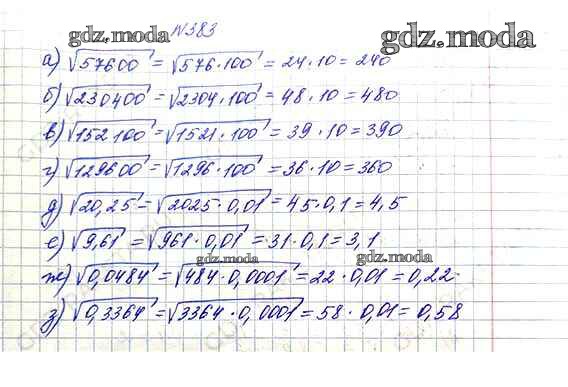 №383
gdz.moda
gdz.moda
а) √57600 = √576·100 = 24·10 = 240
б) √230400 = √2304·100 = 48·10 = 480
в) √152100 = √1521·100 = 39·10 = 390
г) √129600 = √1296·100 = 36·10 = 360
д) √20,25 = √2025·0,01 = 45·0,1 = 4,5
е) √9,61 = √961·0,01 = 31·0,1 = 3,1
gdz.moda
gdz.moda
ж) √0,0484 = √484·0,0001 = 22·0,01 = 0,22
з) √0,3364 = √3364·0,0001 = 58·0,01 = 0,58